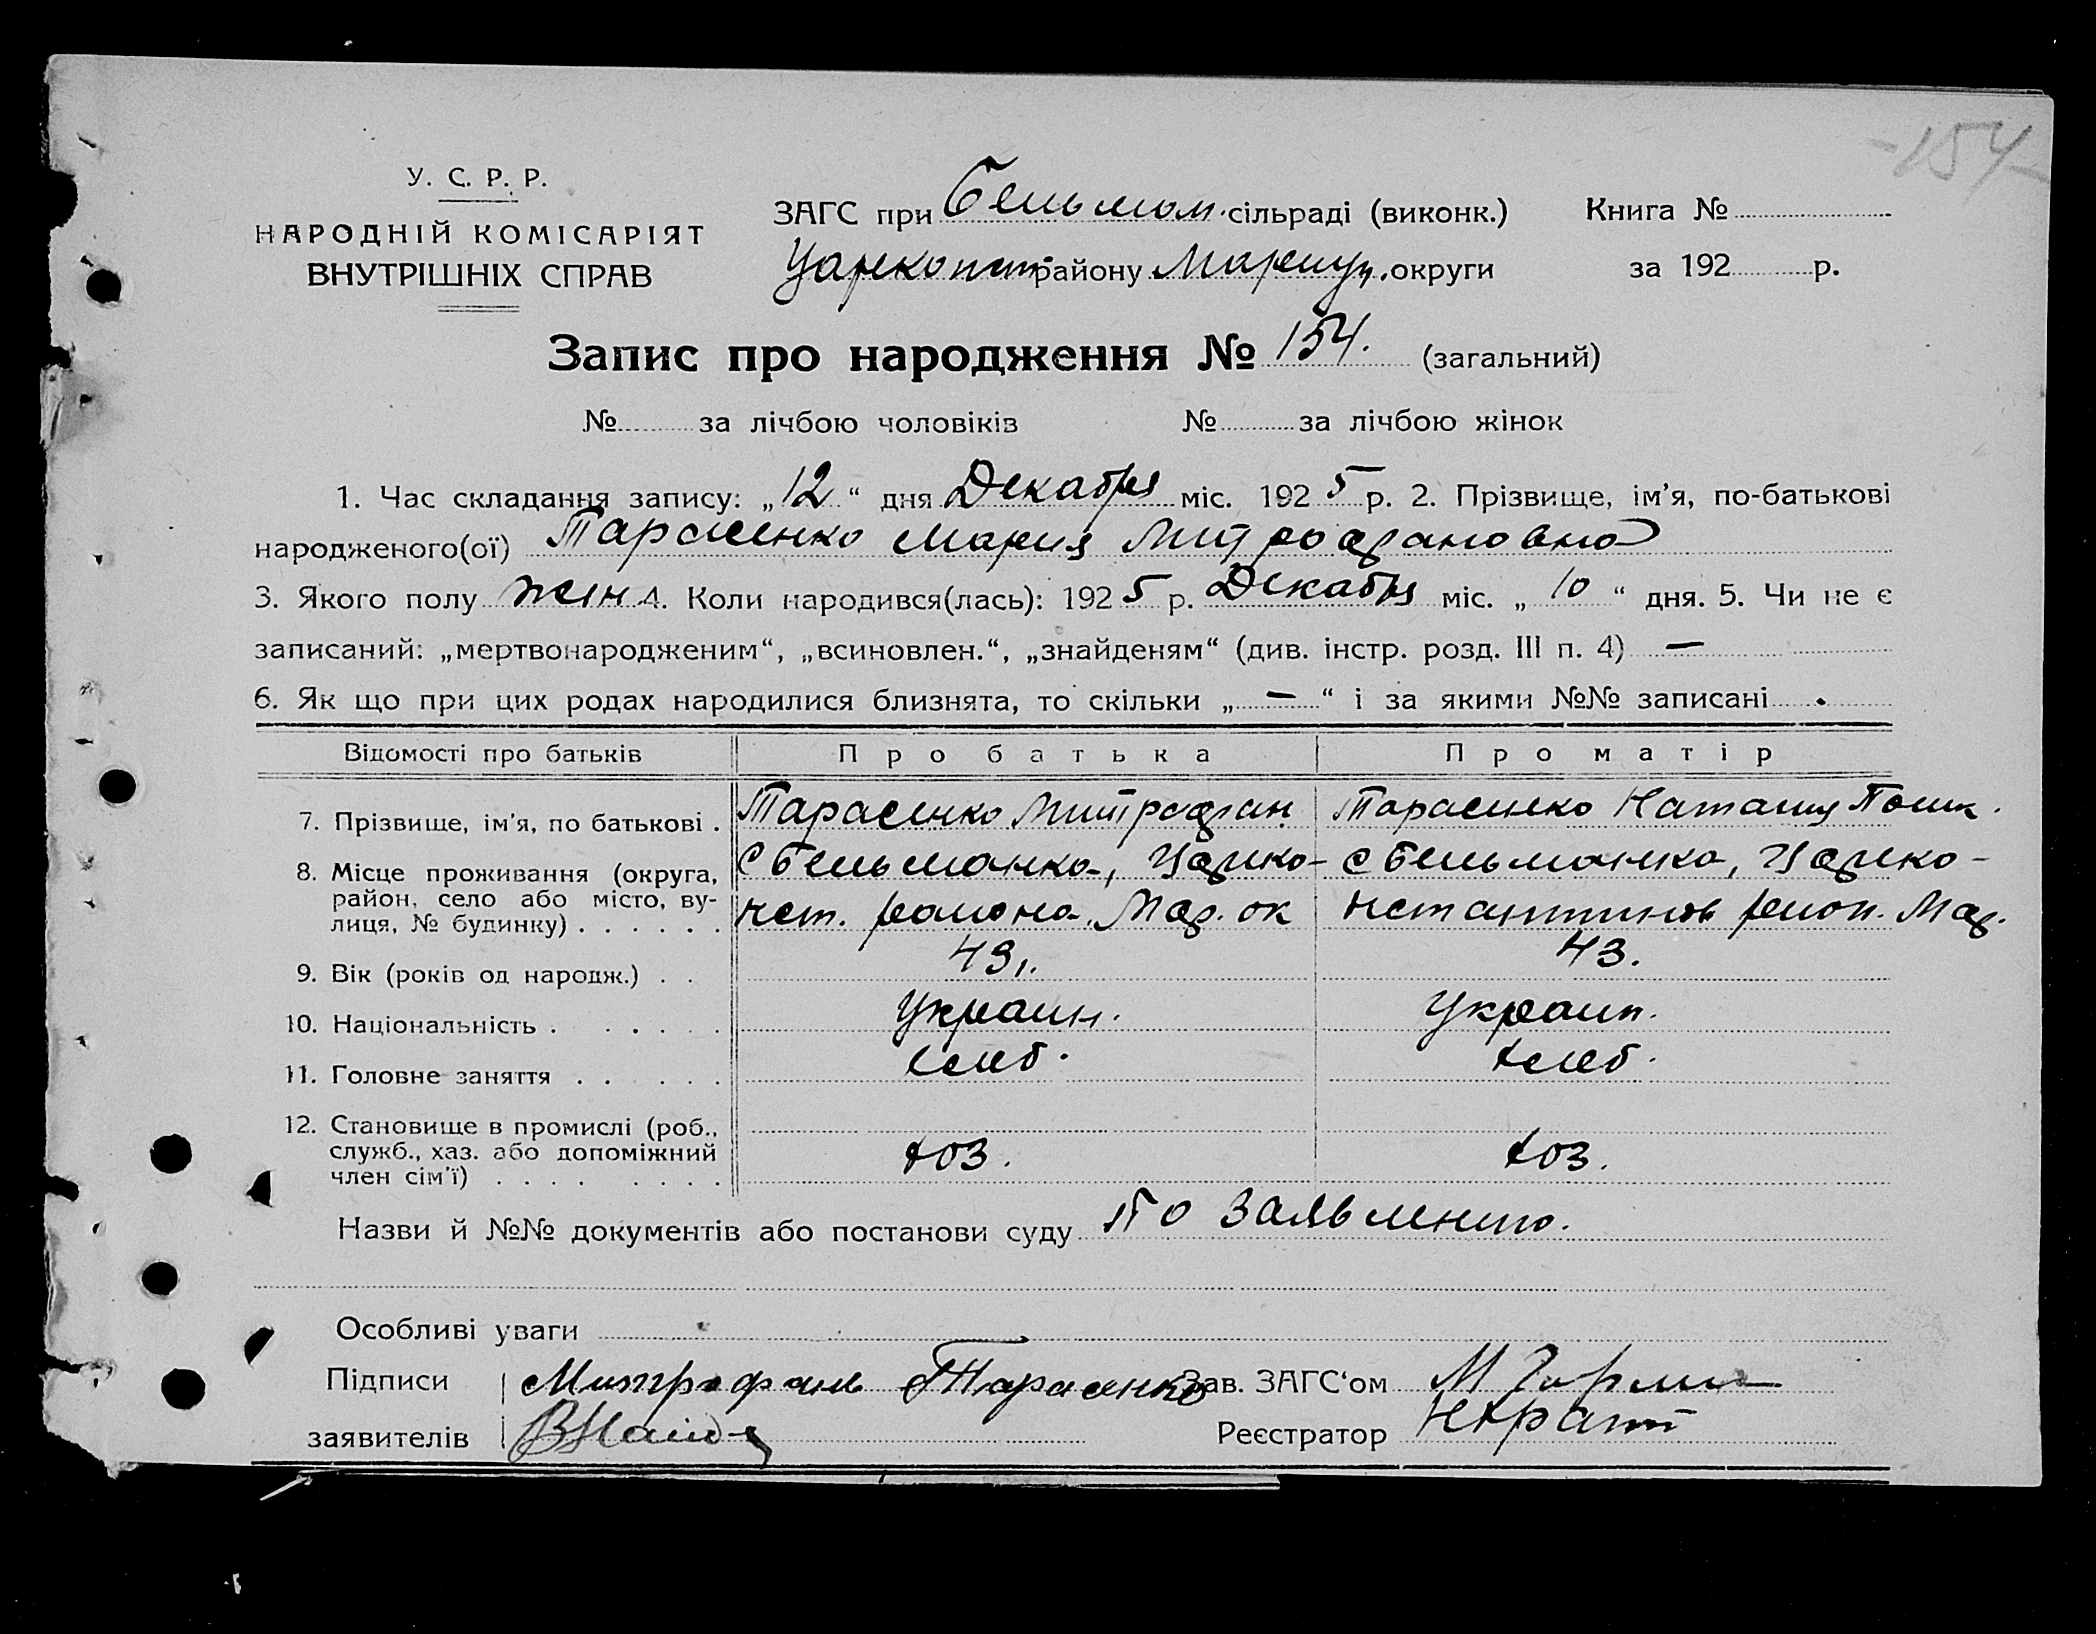 -154-
У. С. Р. Р.
НАРОДНІЙ КОМІСАРІЯТ
ВНУТРІШНІХ СПРАВ
ЗАГС при Бельман. сільраді (виконк.)
Царекон районy Мариуп. округи
Книга №
за 192 р.
Запис про народження № 154. (загальний)
№ за лічбою чоловіків № за лічбою жінок
1. Час складання запису: „12“ дня Декабря міс. 1925 р. 2. Прізвище, ім’я, по-батькові
народженого(ої) Тарасенко Мария Митрофановна
3. Якого полу жін 4. Коли народився(лась): 1925 р. Декабря міс. „10“ дня. 5. Чи не є
записаний: „мертвонародженим“, „всиновлен.“, „знайденям“ (див. інстр. розд. III п. 4) —
6. Як що при цих родах народилися близнята, то скільки „—“ і за якими №№ записані
Відомості про батьків Про батька Про матір
7. Прізвище, ім’я, по батькові . Тарасенко Митрофан Тарасенко Наталия
8. Місце проживання (округа, район, село або місто, вулиця, № будинку) . . . . . .
с Бельманка, Царекo- нст. района, Мар. ок
с Бельманка, Царекo- нстантинов район. Мар.
9. Вік (років од народж.) . . 43. 43.
10. Національність . . . . . . Украин. Украин.
11. Головне заняття . . . . . . хлеб. хлеб.
12. Становище в промислі (роб., служб., хаз. або допоміжний член сім’ї) . . . . . . . . хоз. хоз.
Назви й №№ документів або постанови суду По заявлению.
Особливі уваги
Підписи Митрофань Тарасенко Зав. ЗАГС‘ом М
заявителів Реєстратор